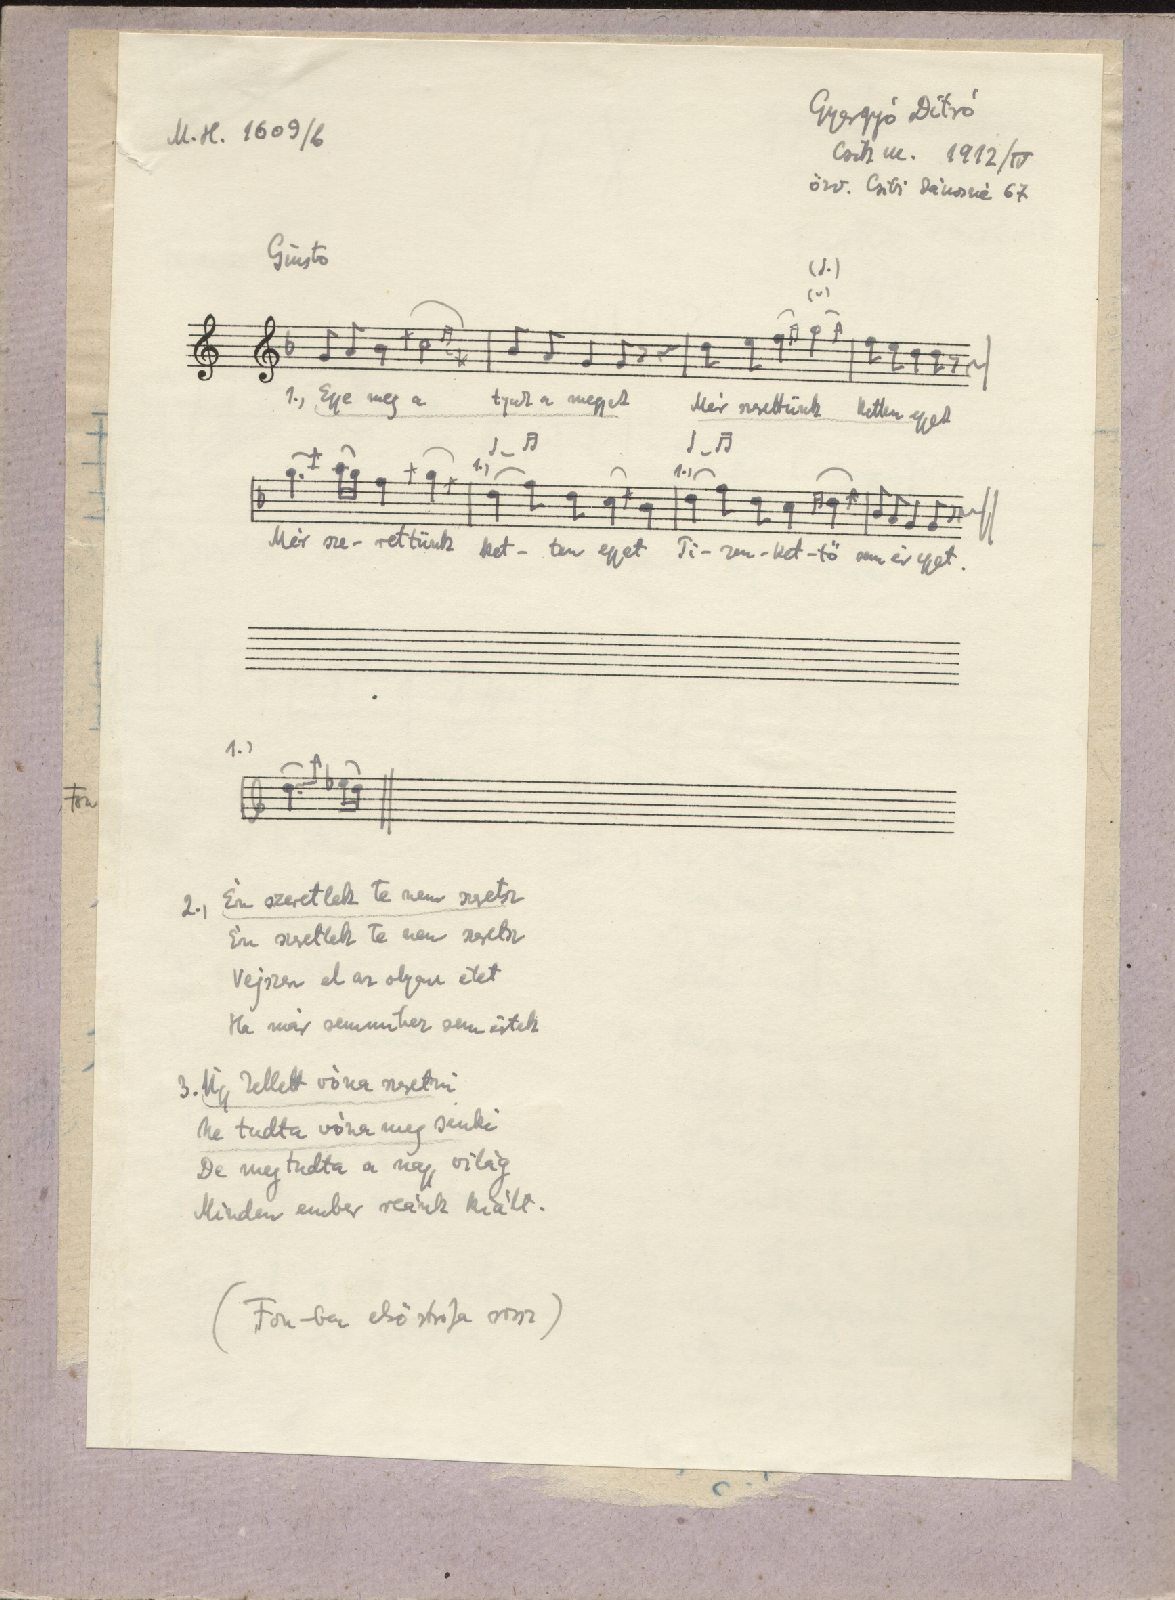 M.H. 1609/b
Gyergyó Ditró
Csík m. 1912/IV
özv. Csibi Jánosné 67
Giusto
1., Egye meg a tyuk a megyet Mér szerettünk ketten egyet
1.,
1.,
Mér sze- rettünk ket- ten egyet Ti-zen-ket-tő sem ér egyet.
1.,
Fon
2., Én szeretlek te nem szeretsz
Én szeretlek te nem szeretsz
Vejszen el az olyan élet
Ha már semmihez sem értek
3. Úgy kellett vóna szeretni
Ne tudta vóna meg senki
De megtudta a nagy világ
Minden ember reánk kiált.
(Fon-ban első strófa rossz)